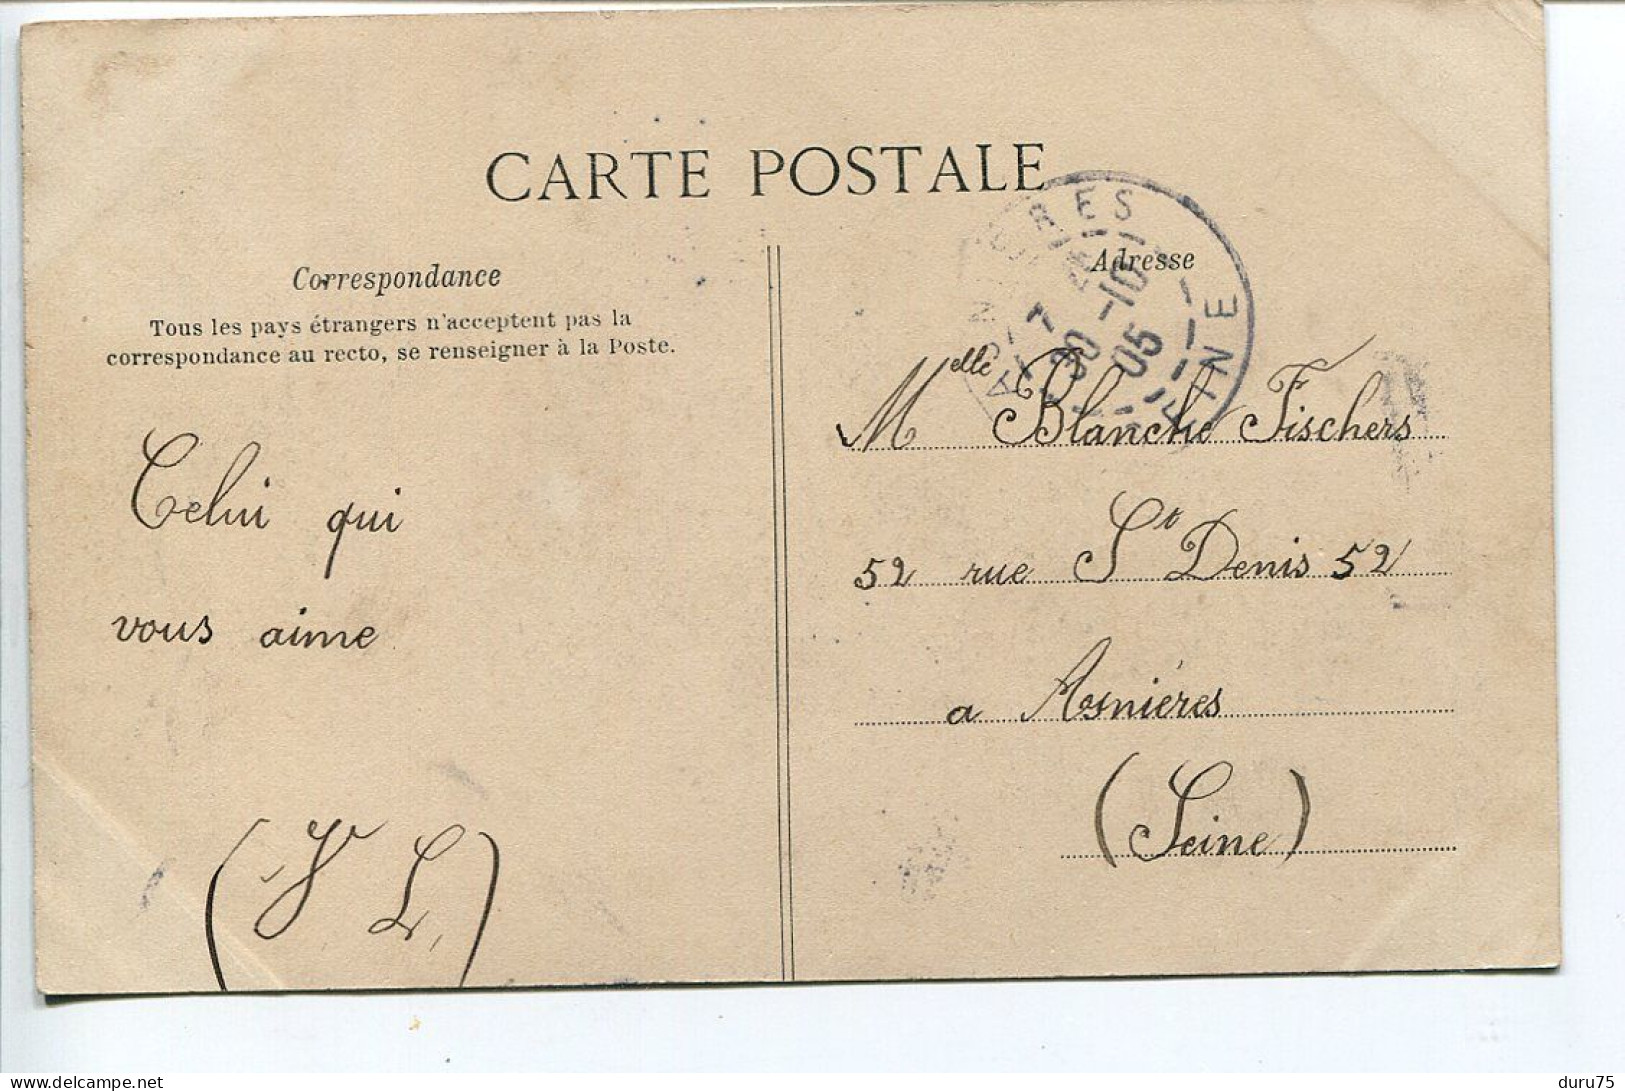 CARTE POSTALE
Correspondance
Tous les pays étrangers n'acceptent pas la
correspondance au recto, se renseigner à la Poste.
Celui qui
vous aime
Adresse
Melle Blanche Fischers
52 rue St Denis 52
a Asnières
(Seine)
ASNIERES
30-10
05
SEINE
delcampe.net
duru75